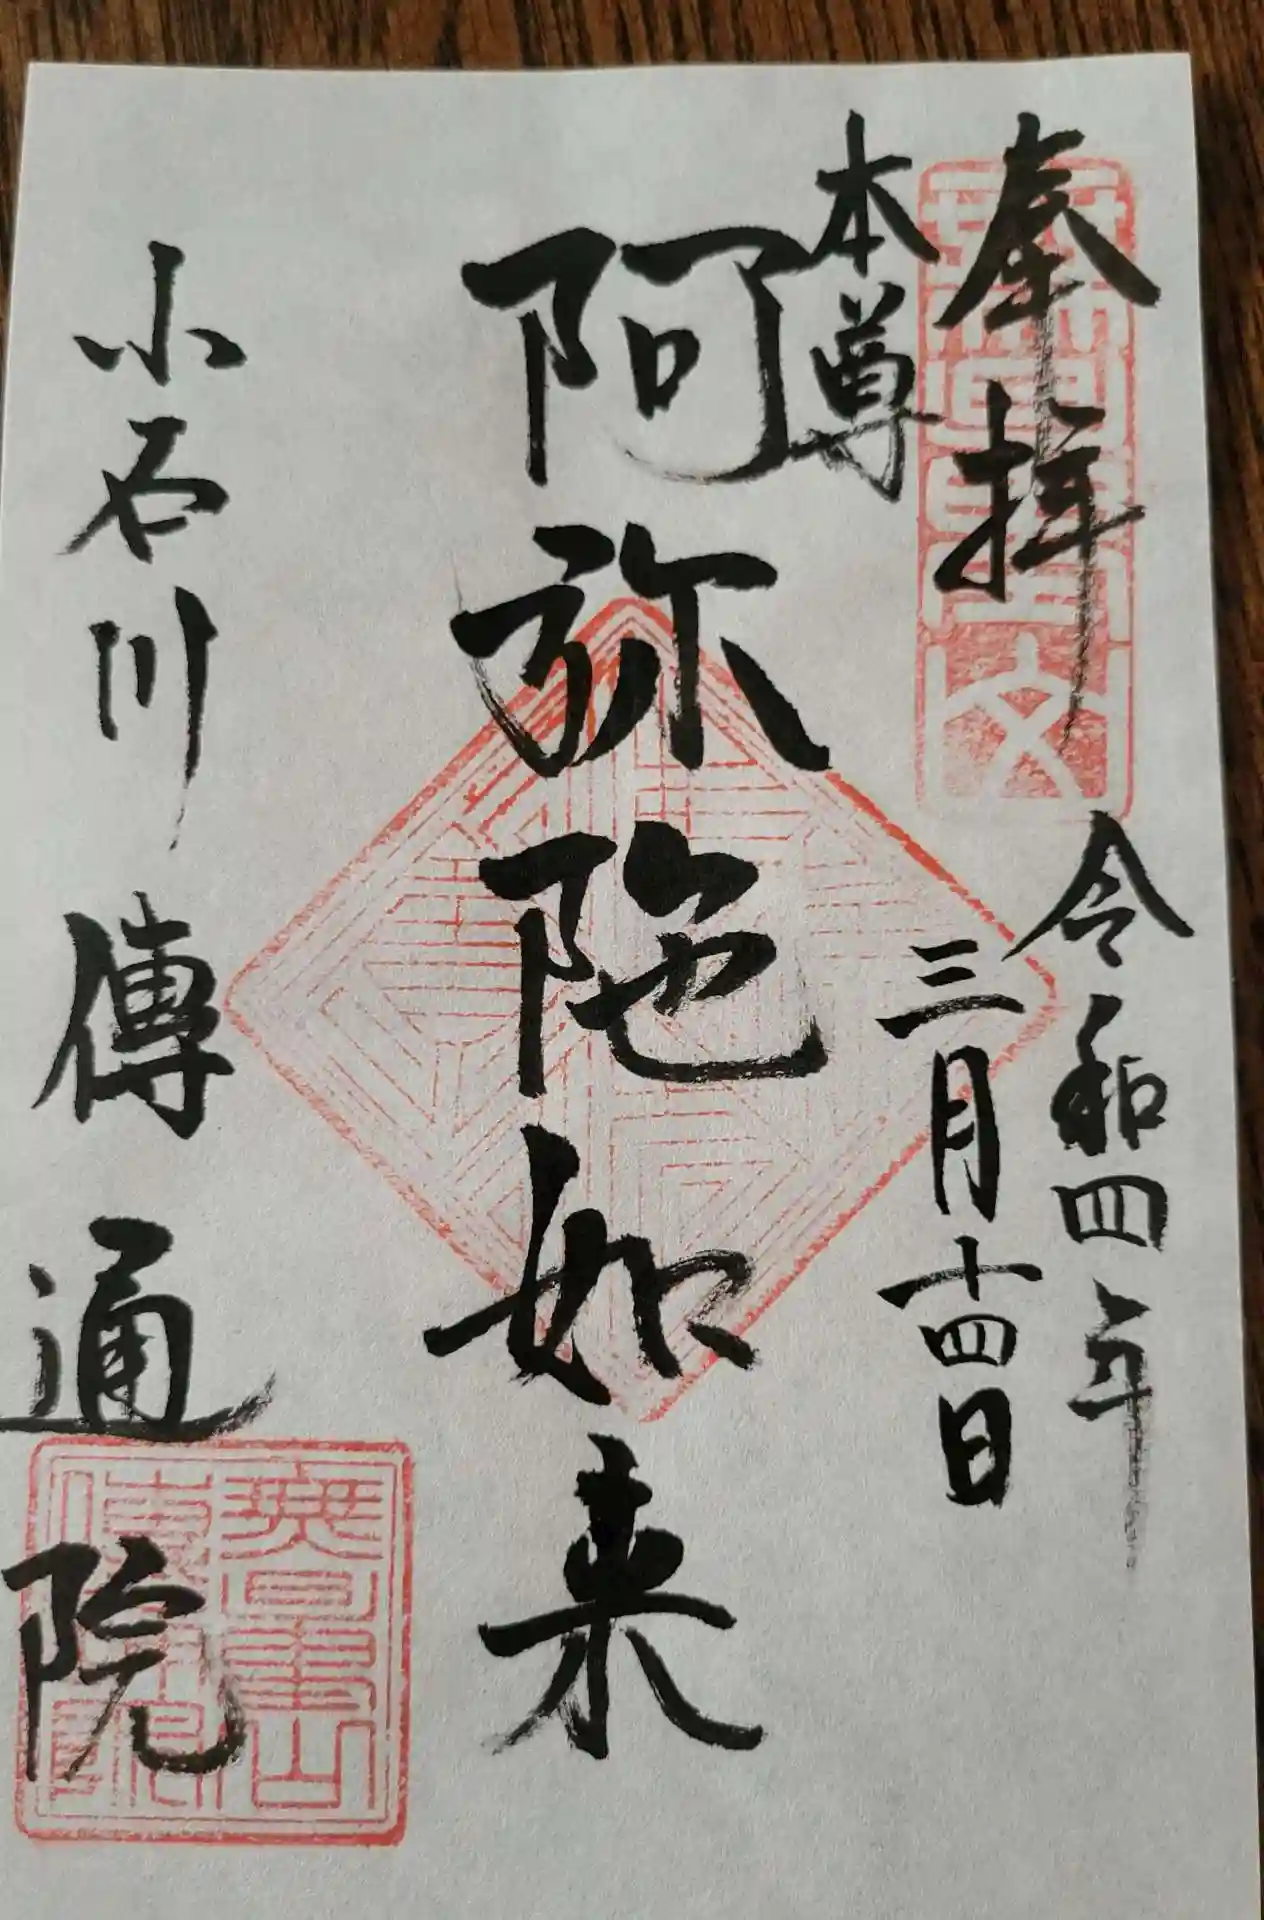 奉拝
令和四年
三月十四日
本尊
阿弥陀如来
小石川 傳通院
無量山
傳通院